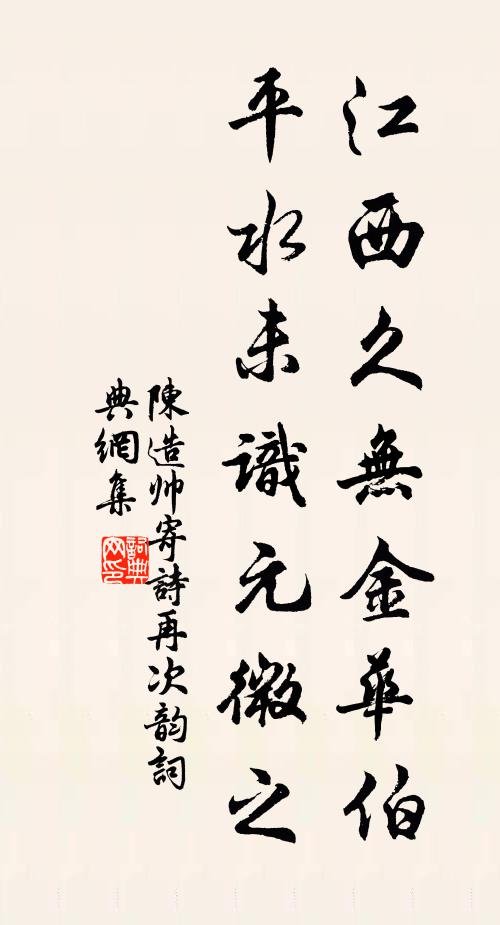 江西久無金華伯
平水未識元微之
陳造帅寄詩再次韵詞
典網集
詞典
网印